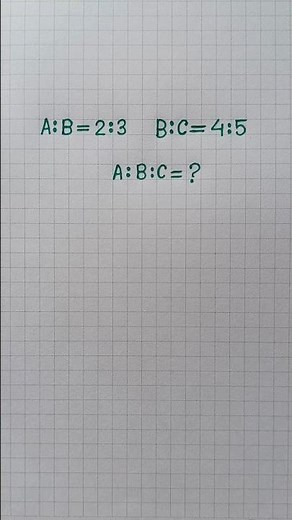 A:B=2:3 B:C=4:5
A:B:C=?